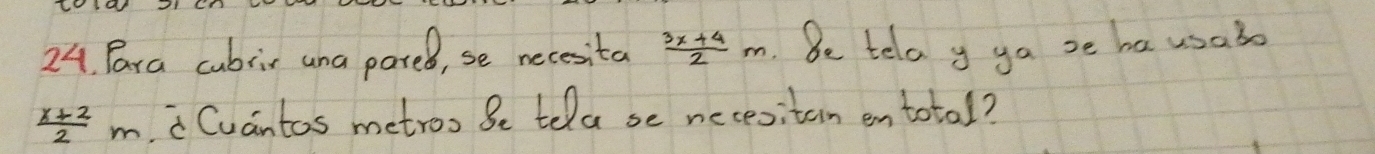 24. Para cubrir una pared, se necesita \frac{3x+4}{2} m. De tela y ya se ha usado
\frac{x+2}{2} m. ¿Cuántos metros De tela se necesitan en total?